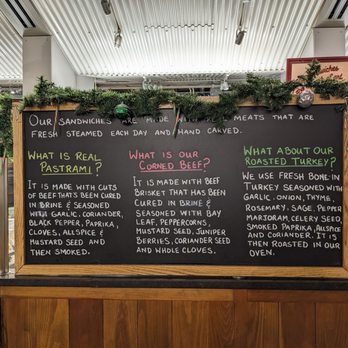 Our Sandwiches are made with deli meats that are
fresh steamed each day and hand carved.
What is Real
Pastrami?
It is made with cuts
of beef that's been cured
in brine & seasoned
with garlic, coriander,
black pepper, paprika,
cloves, allspice &
mustard seed and
then smoked.
What is our
Corned Beef?
It is made with beef
brisket that has been
cured in brine &
seasoned with bay
leaf, peppercorns,
mustard seed, juniper
berries, coriander seed
and whole cloves.
What about our
Roasted Turkey?
We use fresh bone in
turkey seasoned with
garlic, onion, thyme,
rosemary, sage, pepper
marjoram, celery seed,
smoked paprika, allspice
and coriander. It is
then roasted in our
oven.